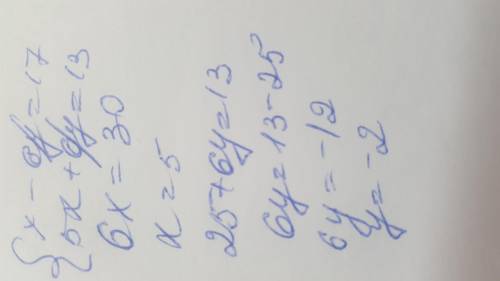 x - 6y = 17
5x + 6y = 13
6x = 30
x = 5
25 + 6y = 13
6y = 13 - 25
6y = -12
y = -2